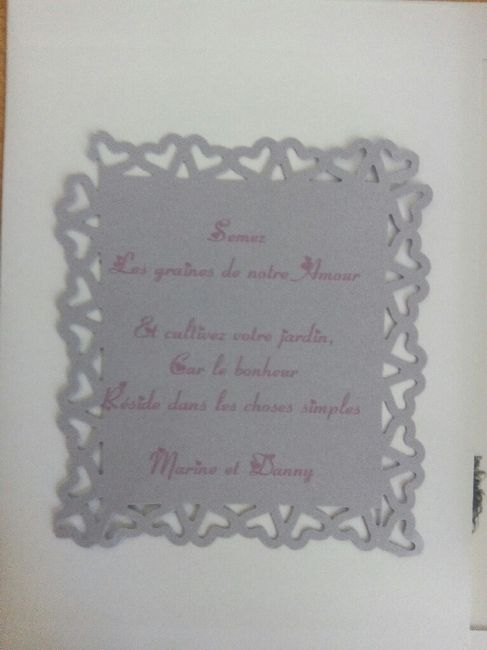 Semez
Les graines de notre Amour
Et cultivez votre jardin,
Car le bonheur
Réside dans les choses simples
Marine et Danny